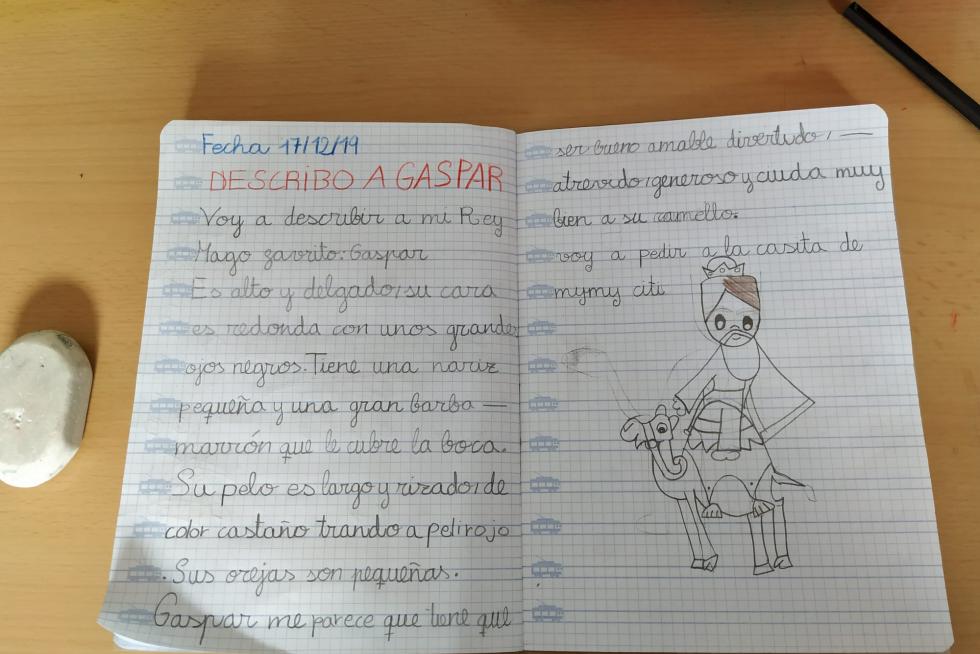 Fecha 17/12/19
DESCRIBO A GASPAR
Voy a describir a mi Rey
Mago gavrito: Gaspar
Es alto y delgado, su cara
es redonda con unos grandes
ojos negros. Tiene una nariz
pequeña y una gran barba —
marrón que le cubre la boca.
Su pelo es largo y rizado, de
color castaño trando a pelirojo
. Sus orejas son pequeñas.
Gaspar me parece que tiene que
ser bueno amable divertudo, —
atrevido, generoso y cuida muy
bien a su camello.
voy a pedir a la casita de
mymy citi